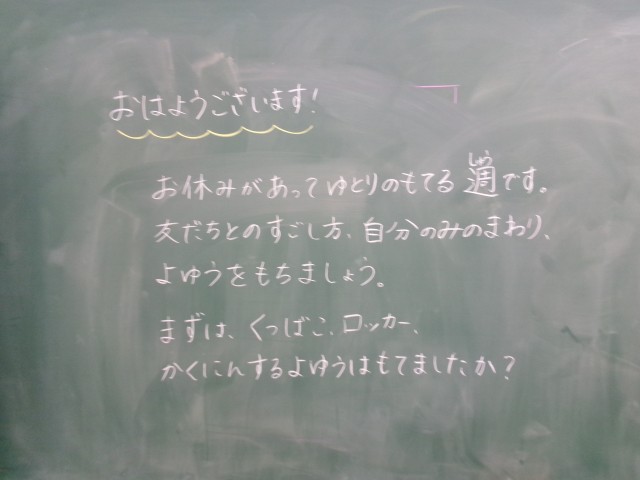 おはようございます!
お休みがあってゆとりのもてる週です。
友だちとのすごし方、自分のみのまわり、
よゆうをもちましょう。
まずは、くつばこ、ロッカー、
かくにんするよゆうはもてましたか?